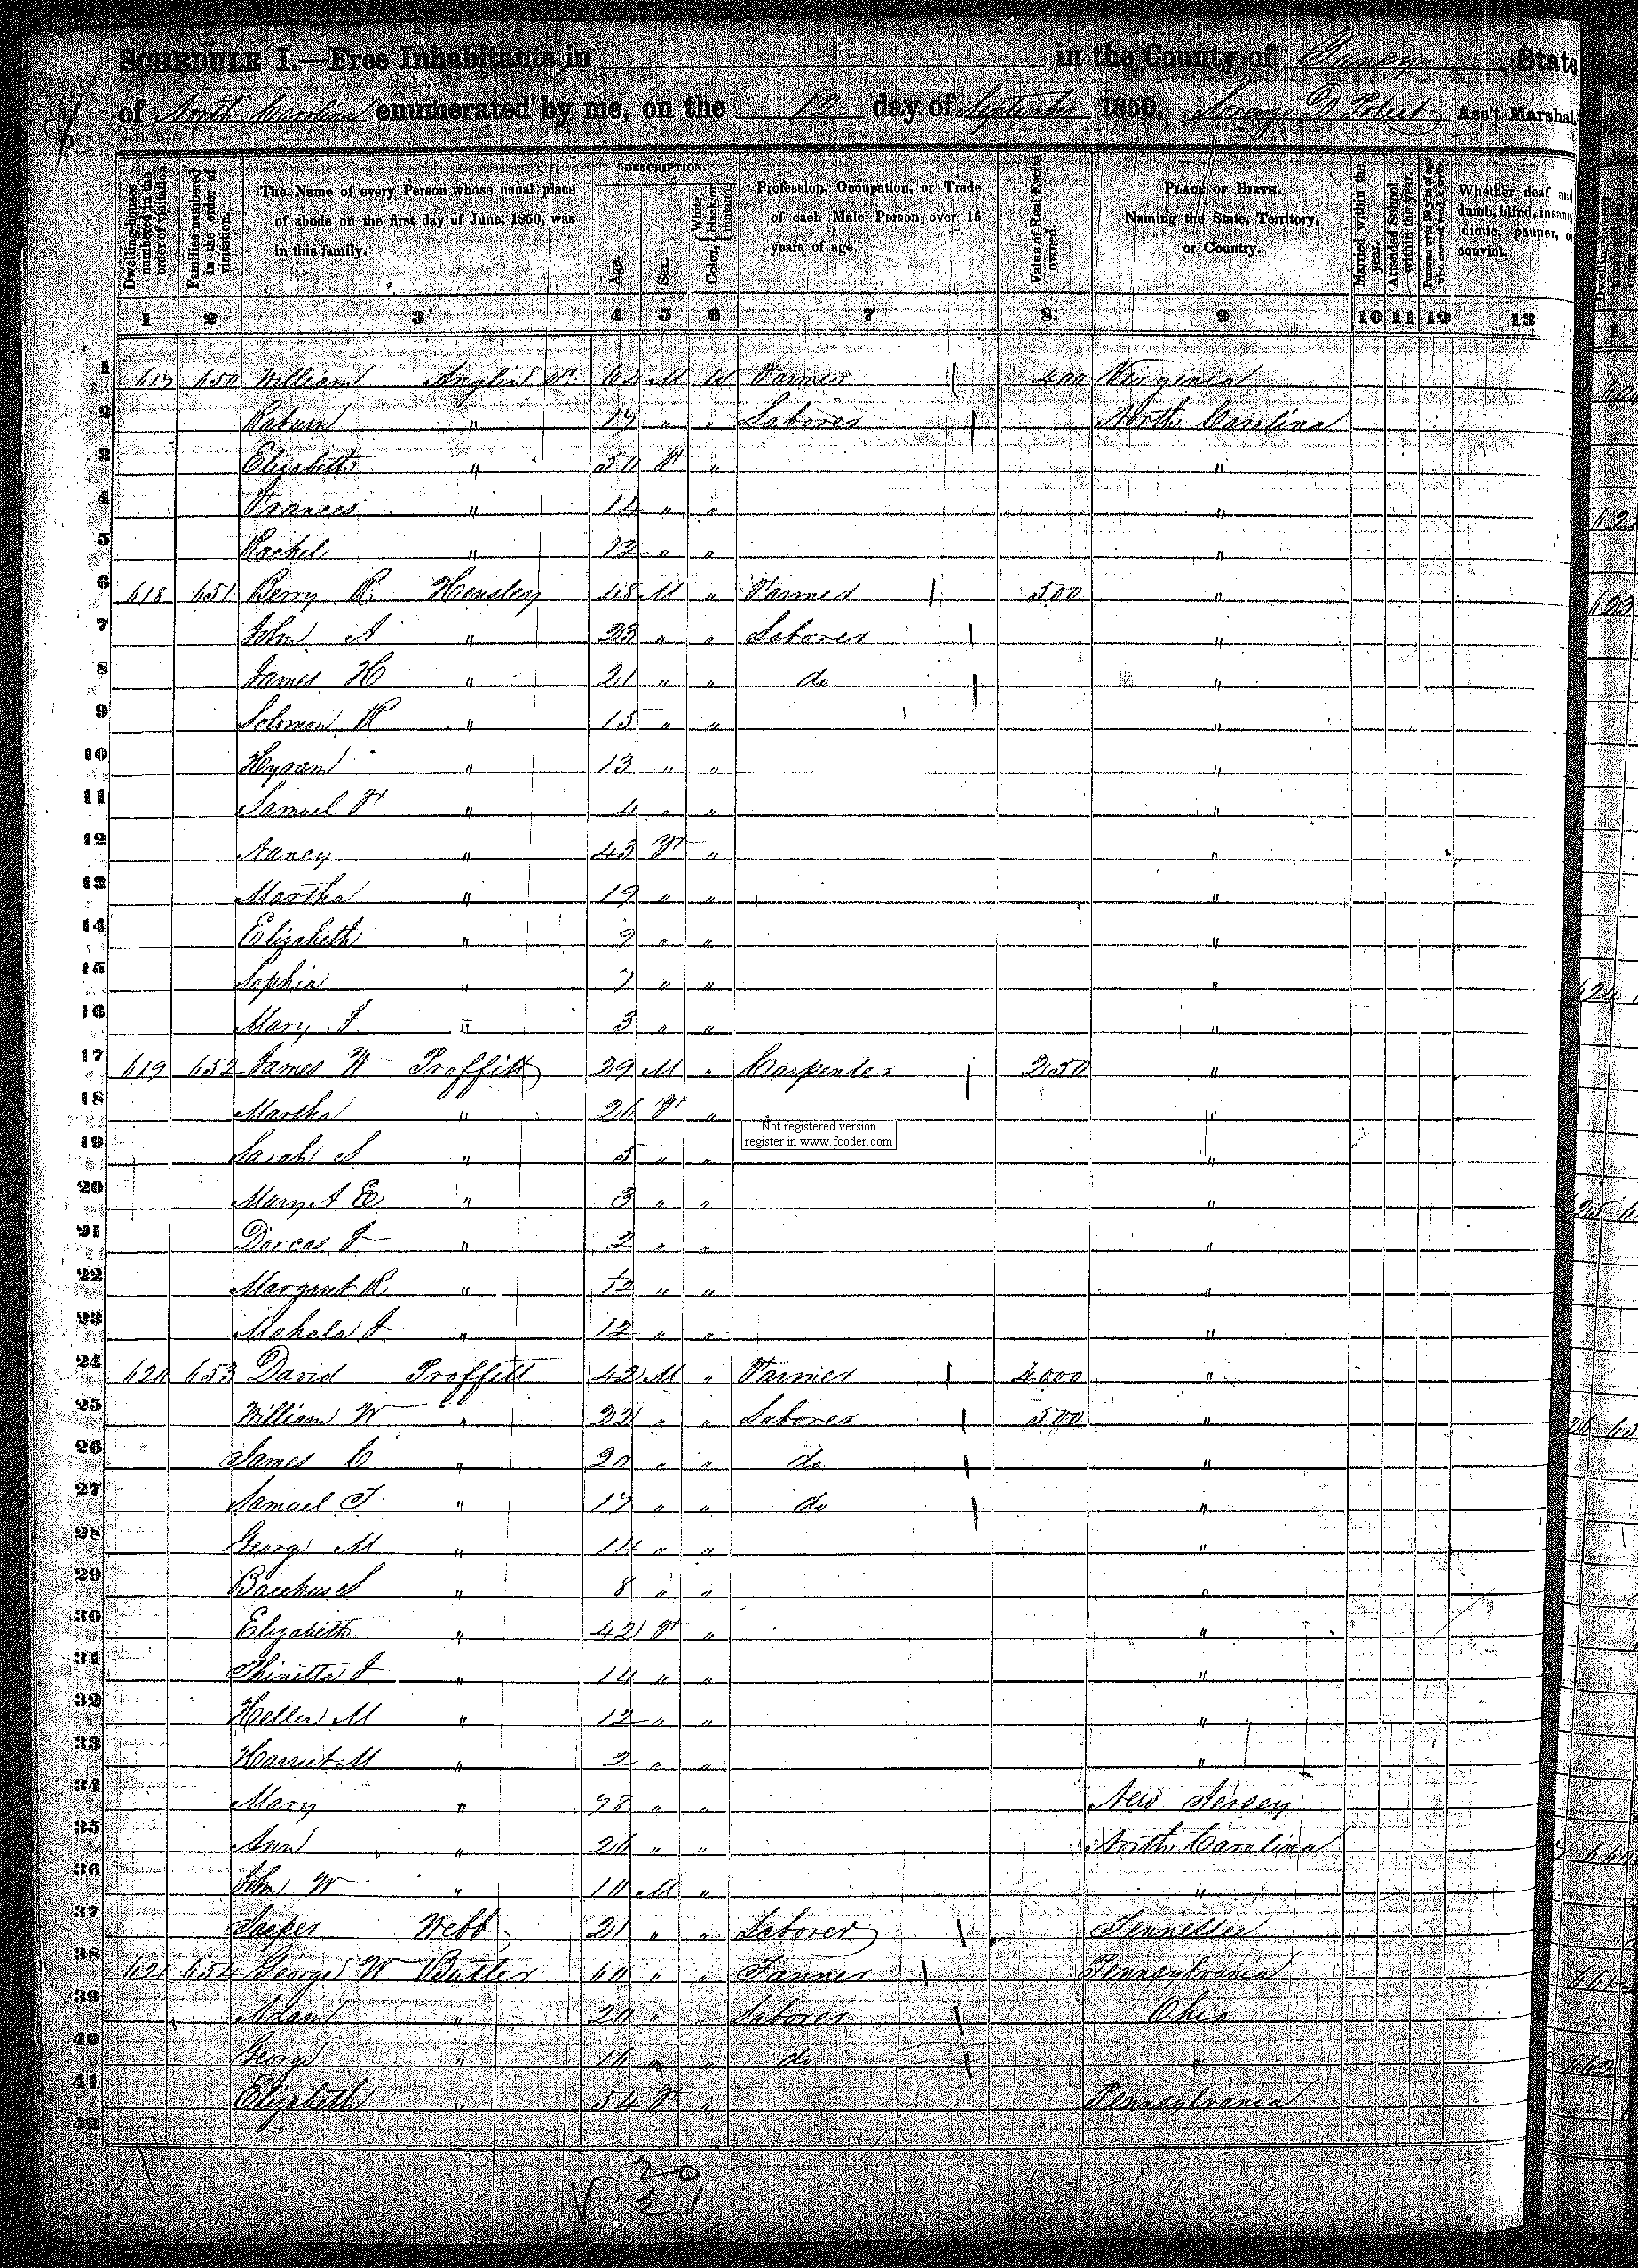 SCHEDULE I.—Free Inhabitants in in the County of Yancey State
of North Carolina enumerated by me, on the 12 day of September 1850. Ass't Marshal.
Dwelling-houses numbered in the order of visitation.
Families numbered in the order of visitation.
The Name of every Person whose usual place of abode on the first day of June, 1850, was in this family.
DESCRIPTION.
Age.
Sex.
Color, White, black, or mulatto.
Profession, Occupation, or Trade of each Male Person over 15 years of age.
Value of Real Estate owned.
PLACE OF BIRTH. Naming the State, Territory, or Country.
Married within the year.
Attended School within the year.
Persons over 20 y'rs of age who cannot read & write.
Whether deaf and dumb, blind, insane, idiotic, pauper, or convict.
1 2 3 4 5 6 7 8 9 10 11 12 13
1 617 650 William Anglin M W Farmer 400 Virginia
2 Raburn " 17 " " Laborer North Carolina
3 Elizabeth " 50 F " "
4 Frances " 14 " " "
5 Rachel " 12 " " "
6 618 651 Berry R. Hensley 48 M " Farmer 500 "
7 John A " 23 " " Laborer "
8 James H " 21 " " do "
9 Solomon R " 15 " " "
10 Hyram " 13 " " "
11 Samuel F " 4 " " "
12 Nancy " 43 F " "
13 Martha " 19 " " "
14 Elizabeth " 9 " " "
15 Sophia " 7 " " "
16 Mary J. " 3 " " "
17 619 652 James W Proffitt 29 M " Carpenter 250 "
18 Martha " 26 F " "
Not registered version
register in www.fcoder.com
19 Sarah S " 5 " " "
20 Mary A E " 3 " " "
21 Dorcas J " 2 " " "
22 Margaret R " 1/12 " " "
23 Mahala J " 12 " " "
24 620 653 David Proffitt 42 M " Farmer 4000 "
25 William W " 22 " " Laborer 500 "
26 James C " 20 " " do "
27 Samuel T " 17 " " do "
28 George M " 14 " " "
29 Bacchus S " 8 " " "
30 Elizabeth " 42 F " "
31 " 14 " " "
32 M " 12 " " "
33 Harriet M " 2 " " "
34 Mary " 78 " " New Jersey
35 Ann " 26 " " North Carolina
36 John W " 10 M " "
37 Webb 21 " " Laborer Tennessee
38 621 654 George W Butler 60 " " Pennsylvania
39 Adam " 20 " " Laborer Ohio
40 George " 16 " " do "
41 Elizabeth " 54 F " Pennsylvania
42